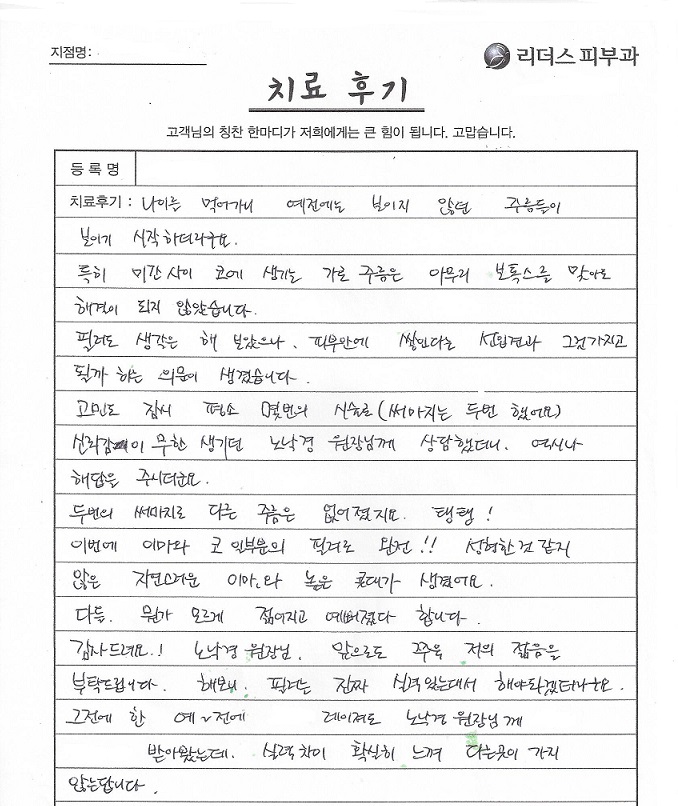 지점명:
리더스 피부과
치료 후기
고객님의 칭찬 한마디가 저희에게는 큰 힘이 됩니다. 고맙습니다.
등 록 명
치료후기 : 나이를 먹어가니 예전에는 보이지 않던 주름들이
보이기 시작하더라구요.
특히 미간 사이 코에 생기는 가로 주름은 아무리 보톡스를 맞아도
해결이 되지 않았습니다.
필러도 생각은 해 보았으나, 피부안에 쌓인다는 선입견과 그걸가지고
될까 하는 의문이 생겼습니다.
고민도 잠시 평소 몇번의 시술로 (써마지는 두번 했어요)
신뢰감이 무한 생기던 노낙경 원장님께 상담했더니. 역시나
해답을 주시더군요.
두번의 써마지로 다른 주름은 없어졌지요. 탱탱!
이번에 이마와 코 윗부분의 필러로 완전!! 성형한것 같지
않은 자연스러운 이마와 높은 콧대가 생겼어요.
다들. 뭔가 모르게 젊어지고 예뻐졌다 합니다.
감사드려요.! 노낙경 원장님. 앞으로도 쭈욱 저의 젊음을
부탁드립니다. 해보니. 필러는 진짜 실력있는데서 해야되겠더라구요.
그전에 한 예~전에 레이저도 노낙경 원장님께
받아왔는데. 실력차이 확실히 느껴 다른곳이 가지
않는답니다.